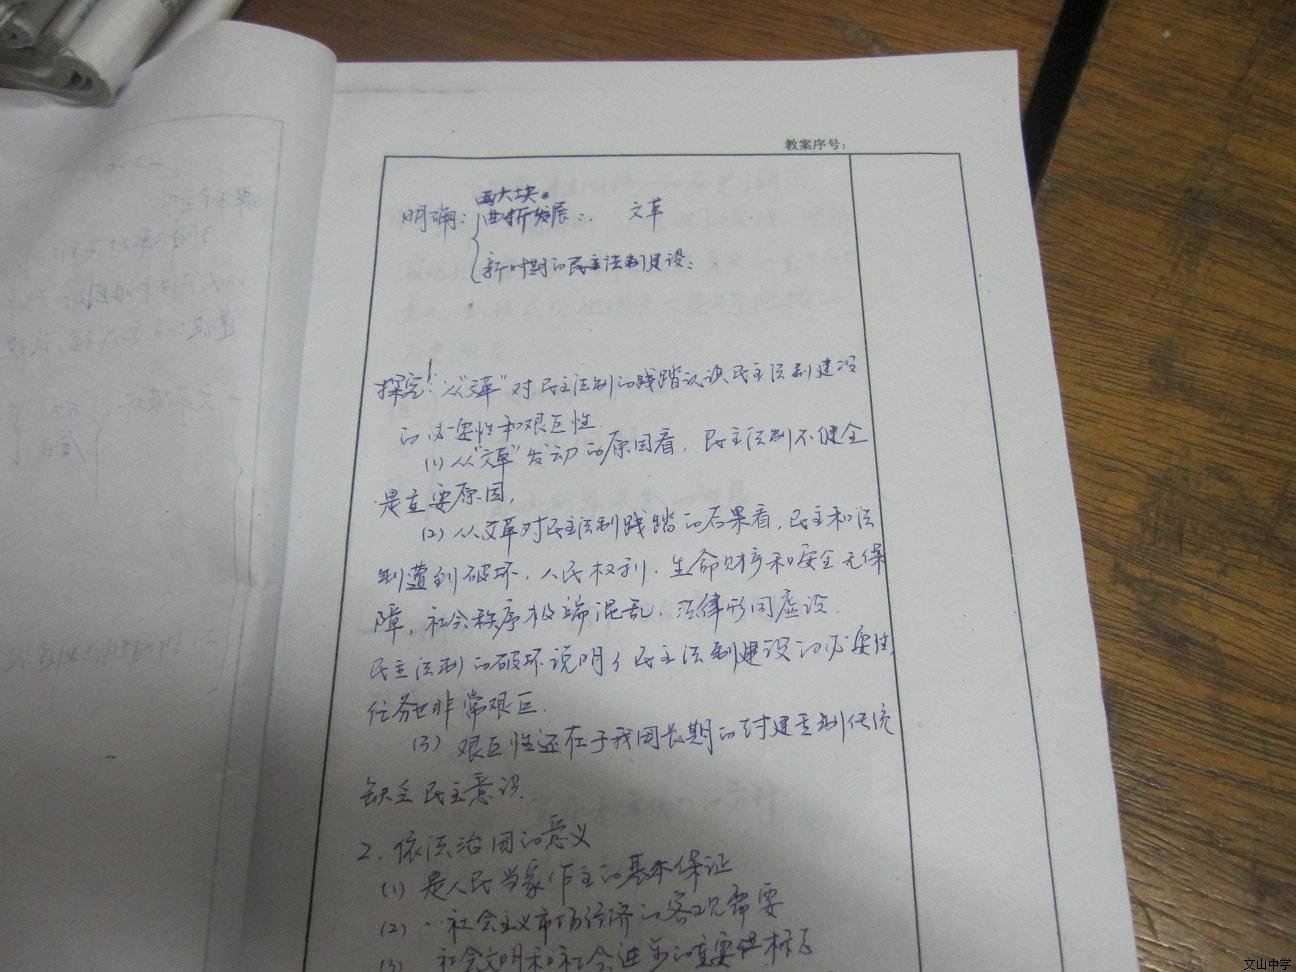 教案序号:
两大块:
明确: 曲折发展: 文革
新时期的民主法制建设:
探究1 从"文革"对民主法制的践踏认识民主法制建设
的必要性和艰巨性
(1) 从"文革"发动的原因看, 民主法制不健全
是重要原因,
(2) 从文革对民主法制践踏的后果看, 民主和法
制遭到破坏, 人民权利, 生命财产和安全无保
障, 社会秩序极端混乱, 法律形同虚设.
民主法制的破坏说明了民主法制建设的必要性,
任务也非常艰巨.
(3) 艰巨性还在于我国长期的封建专制传统
缺乏民主意识.
2. 依法治国的意义
(1) 是人民当家作主的基本保证
(2) ··社会主义市场经济的客观需要
(3) 社会文明和社会进步的重要标志
文山中学